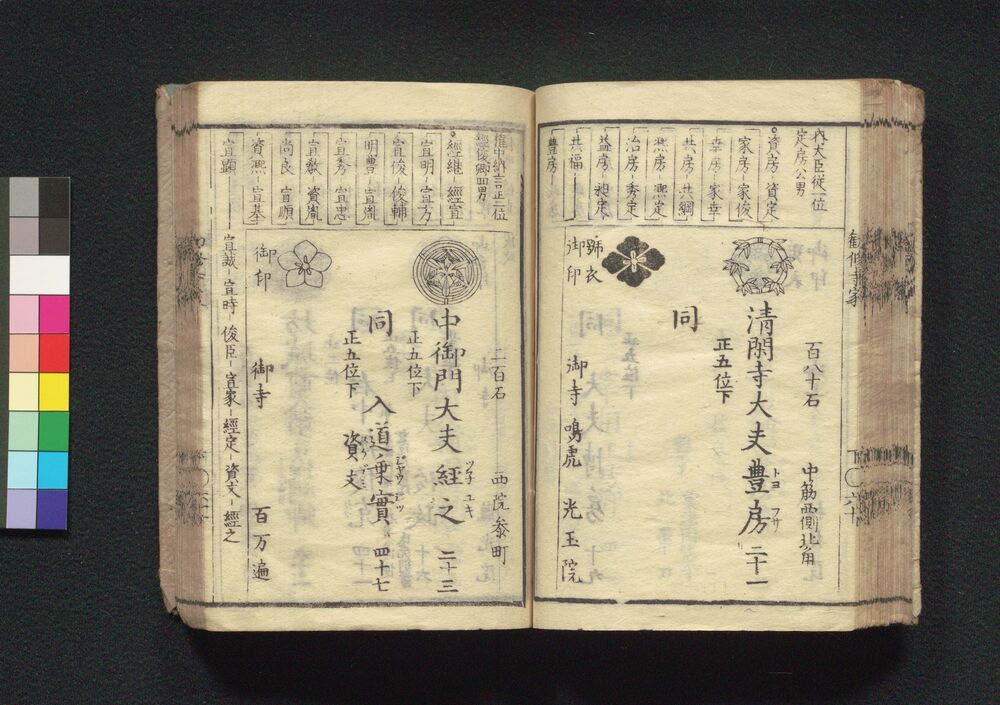 勧修寺家
六十
内大臣従一位
定房公男
資房 資定
家房 家俊
幸房 家幸
共房 共綱
熈房 熈定
治房 秀定
益房 昶定
共福
豊房
百八十石
中筋西側北角
清閑寺大夫豊房 二十一
トヨ フサ
正五位下
同
號衣
御印
御寺 鳴虎 光玉院
権中納言正二位
經俊卿四男
經継 經宣
宣明 宣方
宣俊 俊輔
明豊 宣胤
宣秀 宣忠
宣教 資胤
尚良 宣順
資熈 宣基
宣顕
宣誠 宣時 俊臣 宣家 經定 資文 經之
二百石
西院参町
中御門大夫經之 二十三
ツネ ユキ
正五位下
同 入道乗實 四十七
正五位下
資文
御印
御寺 百万遍